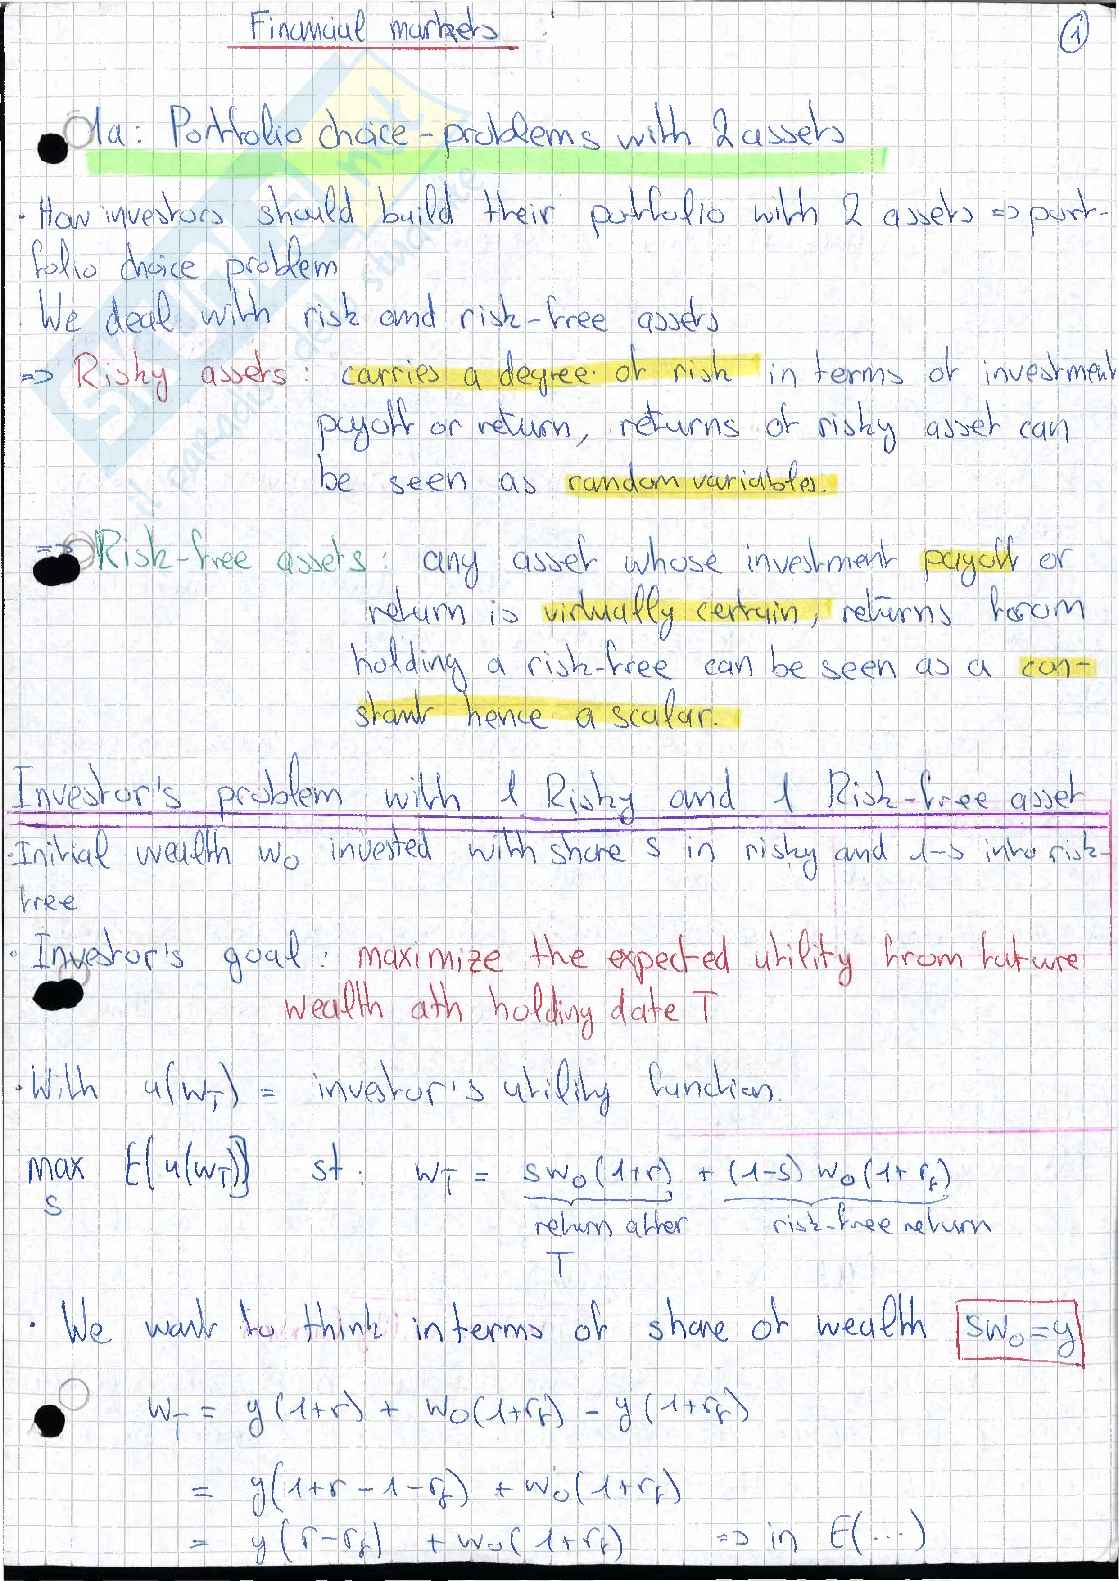 Financial markets
1
1a: Portfolio choice-problems with 2 assets
· How investors should build their portfolio with 2 assets => port-
folio choice problem
We deal with risk and risk-free assets
=> Risky assets: carries a degree of risk in terms of investment
payoff or return, returns of risky asset can
be seen as random variables.
=> Risk-free assets: any asset whose investment payoff or
return is virtually certain, returns from
holding a risk-free can be seen as a con-
stant hence a scalar.
Investor's problem with 1 Risky and 1 Risk-free asset
· Initial wealth w₀ invested with share s in risky and 1-s into risk-
free
· Investor's goal: maximize the expected utility from future
wealth ath holding date T
· With u(w_T) = investor's utility function.
max E[u(w_T)] st: w_T = sw₀(1+r) + (1-s)w₀(1+r_f)
s
return after risk-free return
T
· We want to think in terms of share of wealth sw₀=y
w_T = y(1+r) + w₀(1+r_f) - y(1+r_f)
= y(1+r-1-r_f) + w₀(1+r_f)
= y(r-r_f) + w₀(1+r_f) => in E(...)